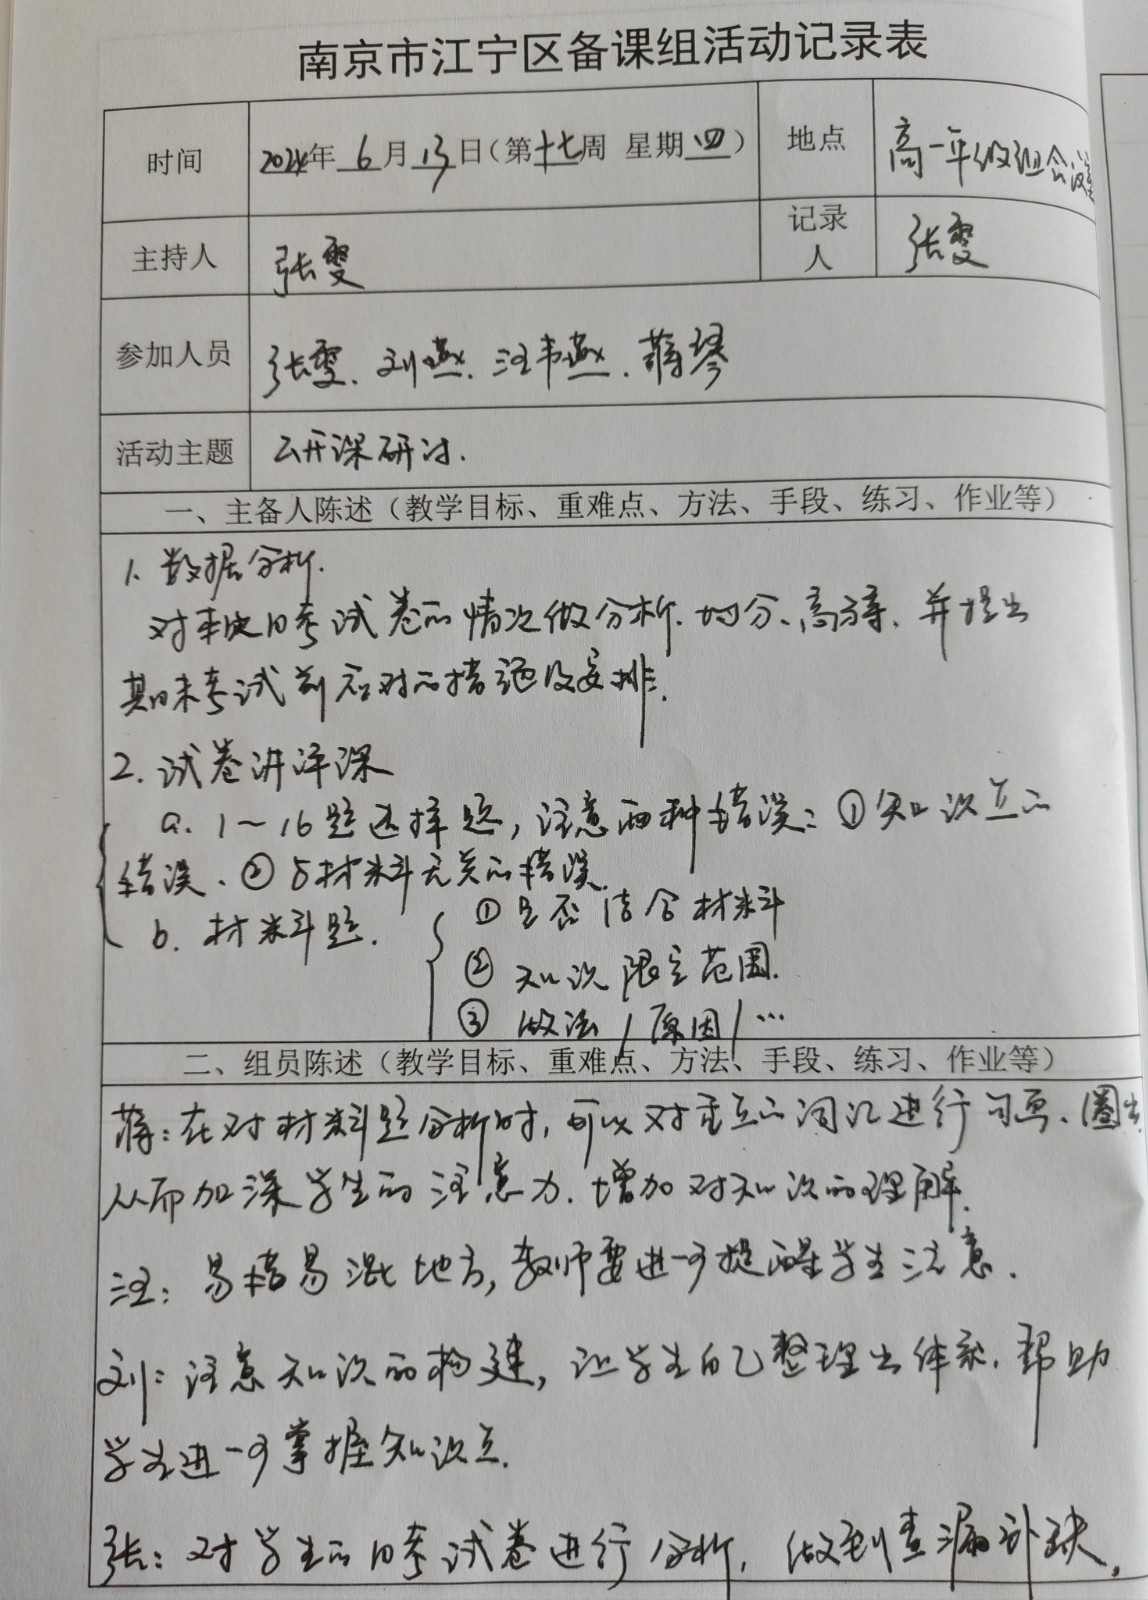 南京市江宁区备课组活动记录表
时间 2024年 6 月 13 日(第 十七 周 星期 四 ) 地点 高一年级组会议室
主持人 张雯 记录人 张雯
参加人员 张雯、刘燕、汪韦燕、蒋琴
活动主题 公开课研讨.
一、主备人陈述（教学目标、重难点、方法、手段、练习、作业等）
1. 数据分析.
对本次月考试卷的情况做分析.均分、高分率、并提出
期末考试前应对的措施及安排.
2. 试卷讲评课
a. 1～16题选择题，注意两种错误：①知识点的
错误、②与材料无关的错误.
b. 材料题. ①是否结合材料
②知识限定范围.
③做法/原因/…
二、组员陈述（教学目标、重难点、方法、手段、练习、作业等）
蒋：在对材料题分析时，可以对重点的词汇进行勾画、圈出
从而加深学生的注意力.增加对知识的理解.
汪：易错易混地方，教师要进一步提醒学生注意.
刘：注意知识的构建，让学生自己整理出体系.帮助
学生进一步掌握知识点.
张：对学生的月考试卷进行分析，做到查漏补缺。